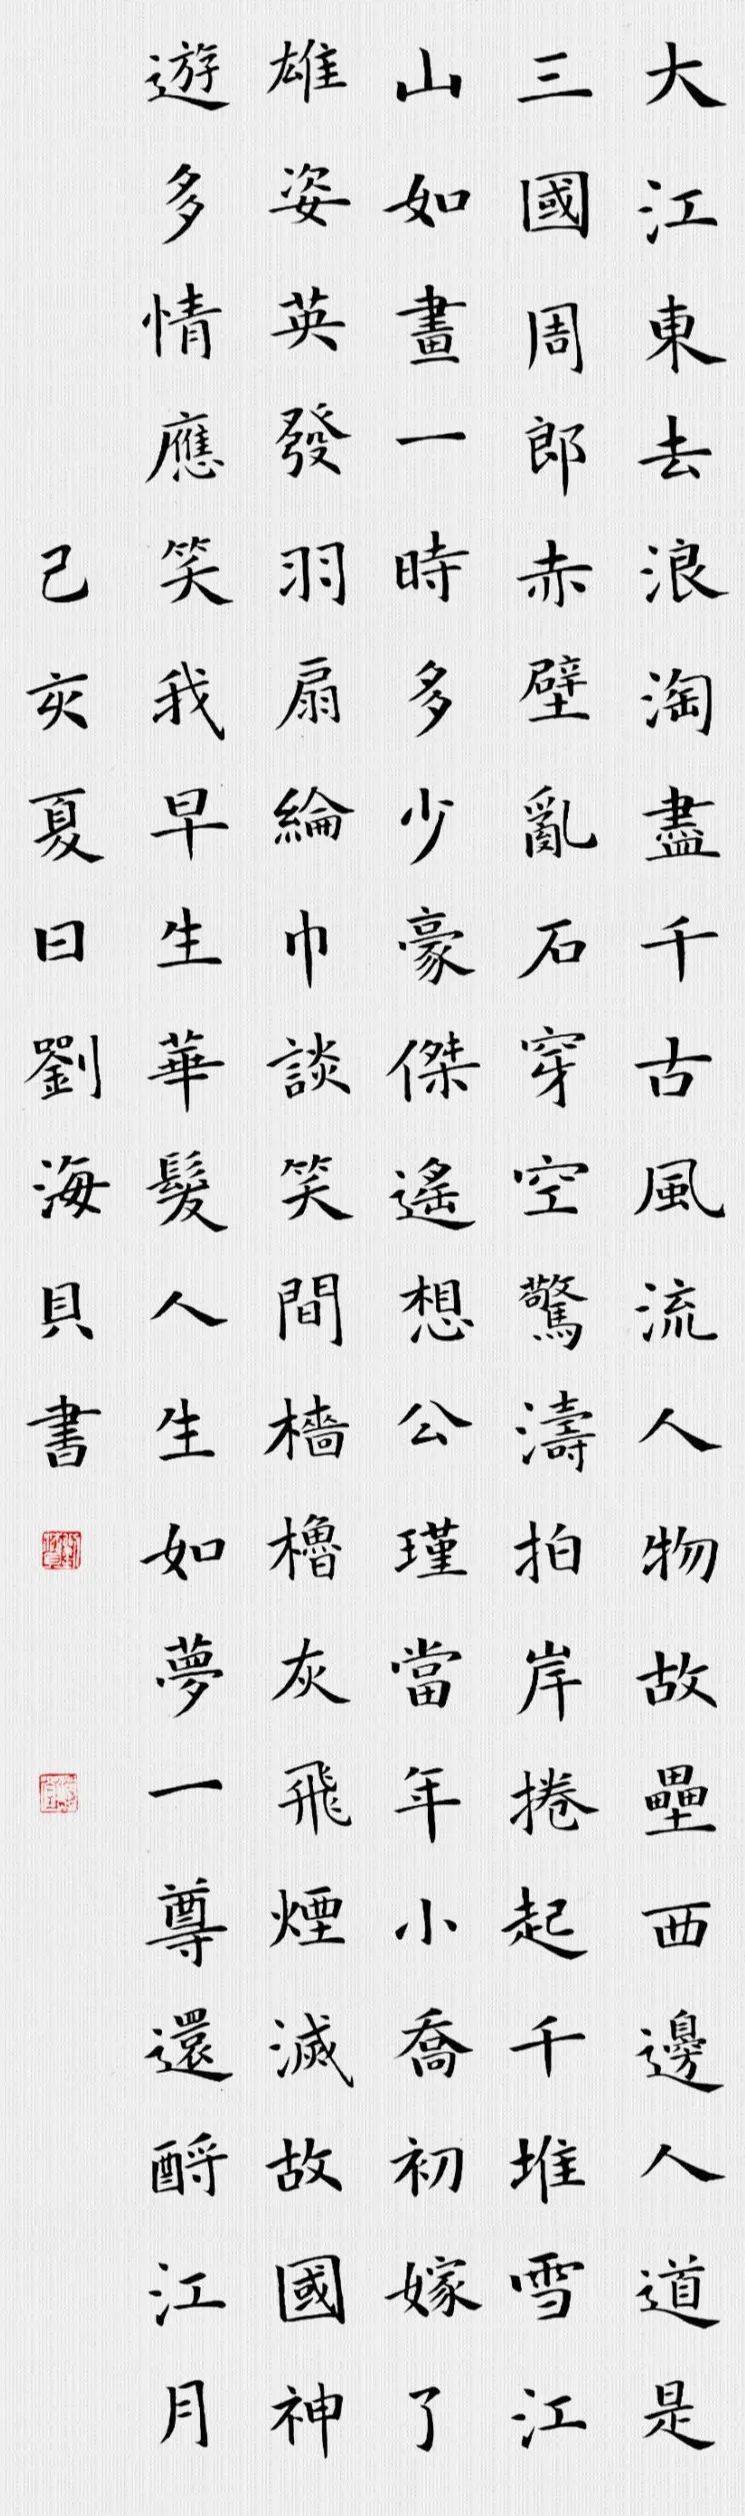 大江東去浪淘盡千古風流人物故壘西邊人道是
三國周郎赤壁亂石穿空驚濤拍岸捲起千堆雪江
山如畫一時多少豪傑遙想公瑾當年小喬初嫁了
雄姿英發羽扇綸巾談笑間檣櫓灰飛煙滅故國神
遊多情應笑我早生華髮人生如夢一尊還酹江月
己亥夏日劉海貝書